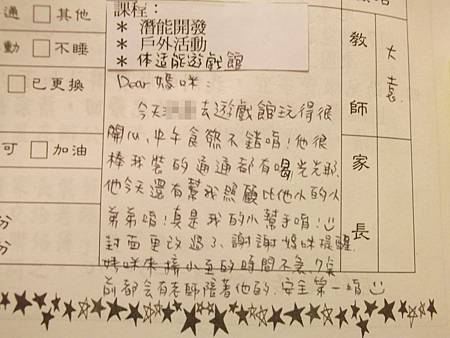 課程：
＊ 潛能開發
＊ 戶外活動
＊ 体适能遊戲館
通 □ 其他
動 □ 不睡
□ 已更換
可 □ 加油
分
分
Dear 媽咪：
今天 去遊戲館玩得很
開心，中午食慾不錯唷！他很
棒我裝的通通都有喝光光耶．
他今天還有幫我照顧比他小的小
弟弟唷！真是我的小幫手唷！
封面更改過了、謝謝媽咪提醒．
媽咪來接小 的時間不急、7點
前都会有老師陪著他的．安全第一唷
教師
家長
大 喜